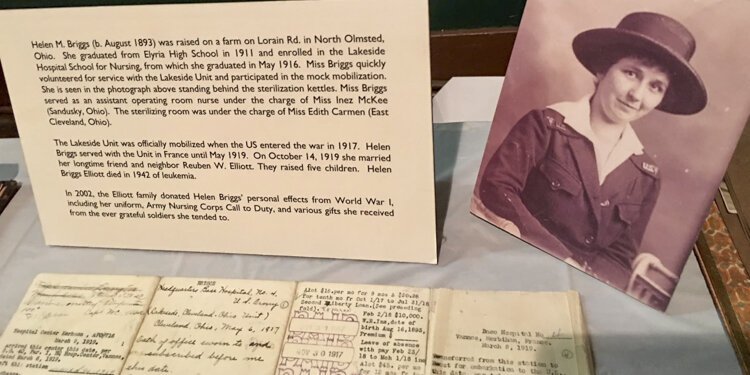 Helen M. Briggs (b. August 1893) was raised on a farm on Lorain Rd. in North Olmsted,
Ohio. She graduated from Elyria High School in 1911 and enrolled in the Lakeside
Hospital School for Nursing, from which she graduated in May 1916. Miss Briggs quickly
volunteered for service with the Lakeside Unit and participated in the mock mobilization.
She is seen in the photograph above standing behind the sterilization kettles. Miss Briggs
served as an assistant operating room nurse under the charge of Miss Inez McKee
(Sandusky, Ohio). The sterilizing room was under the charge of Miss Edith Carmen (East
Cleveland, Ohio).
The Lakeside Unit was officially mobilized when the US entered the war in 1917. Helen
Briggs served with the Unit in France until May 1919. On October 14, 1919 she married
her longtime friend and neighbor Reuben W. Elliott. They raised five children. Helen
Briggs Elliott died in 1942 of leukemia.
In 2002, the Elliott family donated Helen Briggs' personal effects from World War I,
including her uniform, Army Nursing Corps Call to Duty, and various gifts she received
from the ever grateful soldiers she tended to.
Hospital Center
March 2, 1919.
arrived this center this date, per
Headquarters Base Hospital, No. 4
U.S. Army
Lakeside, Cleveland, Ohio Unit
Cleveland, Ohio, May 6, 1917
Oath of office sworn to and
subscribed before me
this date
Alot $15.per mo for
for tenth mo fr Oct 1/17 to Jul 31/18
Second Liberty Loan.(See preceding
fold).
NOV 30 1917
Feb 2/18 $10,000.
W.R.Ins,date of
birth Aug 16,1893,
Premium
Leave of absence
with pay Feb 23/
18 to Mch 1/18 inc
Alot $45. per mo
Base Hospital No.
Vannes, Morbihan, France.
March 8, 1919.
Transferred from this station to